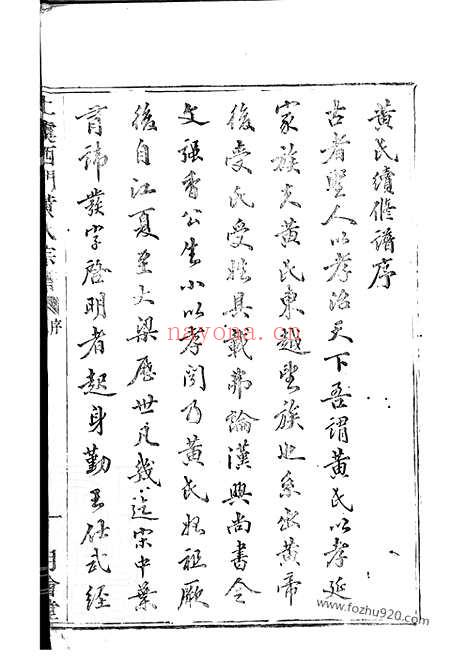 黃氏續修譜序
古者聖人以孝治天下吾謂黃氏以孝延
家族矣黃氏東越望族也系出黃帝
後受氏受姓具載弗論漢興尚書令
文强香公生小以孝聞乃黃氏始祖厥
後自江夏至大梁歷世凡幾迄宋中葉
有諱發字啓明者起身勤王仕武經
上虞西門黃氏宗譜
序
一
nayona.cn
www.fozhu920.com